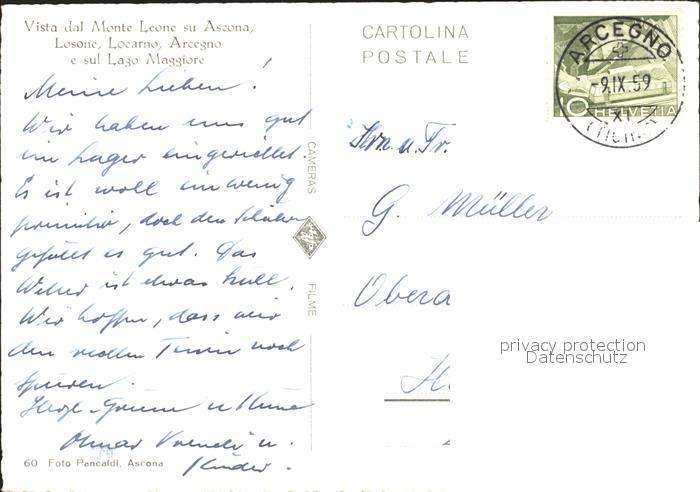 Vista dal Monte Leone su Ascona,
Losone, Locarno, Arcegno
e sul Lago Maggiore
Meine Lieben!
Wir haben uns gut
im Lager eingerichtet.
Es ist wohl ein wenig
primitiv, doch den Schülern
gefällt es gut. Das
Wetter ist etwas kühl.
Wir hoffen, dass wir
den vollen Tessin noch
spüren.
Herzl. Grüsse u. Küsse
Othmar u.
Kinder.
60 Foto Pancaldi, Ascona
CAMERAS
FILME
CARTOLINA
POSTALE
ARCEGNO
-9.IX.59
(TICINO)
HELVETIA
Hrn. u. Fr.
G. Müller
Obera
H.
privacy protection
Datenschutz